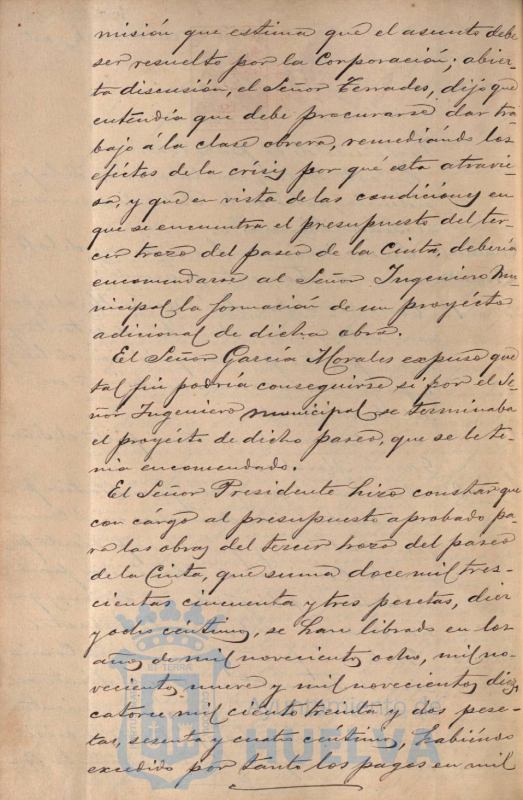 misión que estima que el asunto debe
ser resuelto por la Corporación; abier-
ta discusión, el Señor Terrades, dijo que
entendía que debe procurarse dar tra-
bajo á la clase obrera, remediando los
efectos de la crisis por qué esta atravie-
sa, y que en vista de las condiciones en
que se encuentra el presupuesto del ter-
cer trozo del paseo de la Cinta, debería
encomendarse al Señor Ingeniero Mu-
nicipal la formación de un proyécto
adicional de dicha obra.
El Señor García Morales expuso que
tal fin podría conseguirse si por el Se-
ñor Ingeniero municipal se terminaba
el proyécto de dicho paseo, que se le te-
nía encomendado.
El Señor Presidente hizo constar que
con cárgo al presupuesto aprobado pa-
ra las obras del tercer trozo del paseo
de la Cinta, que suma doce mil tres-
cientas cincuenta y tres pesetas, diez
y ocho céntimos, se han librado en los
años de mil novecientos ocho, mil no-
vecientos nueve y mil novecientos diez,
catorce mil ciento treinta y dos pese-
tas, sesenta y cuatro céntimos, habiéndo
excedido por tanto los pagos en mil
TERRA
Ayuntamiento de
HUELVA